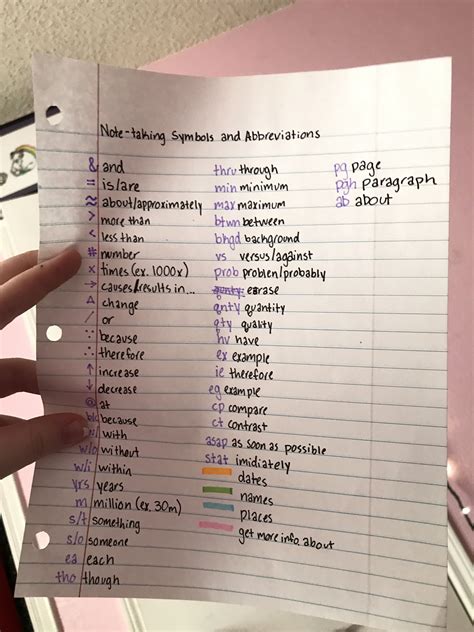 Note-taking Symbols and Abbreviations
& and
= is/are
≈ about/approximately
> more than
< less than
# number
x times (ex. 1000x)
→ causes/results in...
△ change
/ or
∵ because
∴ therefore
↑ increase
↓ decrease
@ at
b/c because
w/ with
w/o without
w/i within
yrs years
m million (ex. 30m)
s/t something
s/o someone
ea each
tho though
thru through
min minimum
max maximum
btwn between
bhgd background
vs versus/against
prob problen/probably
erase
qnty quantity
qty quality
hv have
ex example
ie therefore
eg example
cp compare
ct contrast
asap as soon as possible
stat imidiately
dates
names
places
get more info. about
pg page
pgh paragraph
ab about